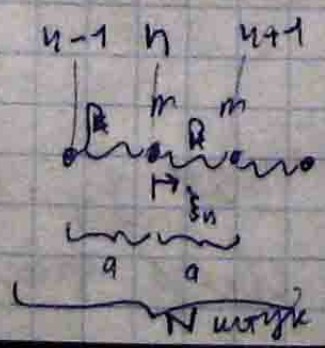 n-1 n n+1
m m
k k
ξn
a a
N штук